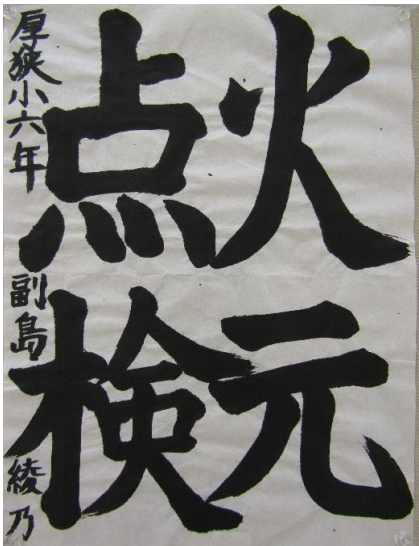 火元
点検
厚狭小六年 副島 綾乃